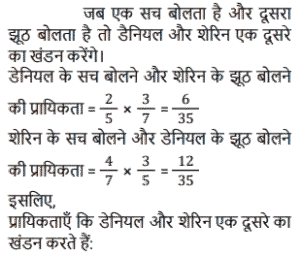 जब एक सच बोलता है और दूसरा
झूठ बोलता है तो डैनियल और शेरिन एक दूसरे
का खंडन करेंगे।
डेनियल के सच बोलने और शेरिन के झूठ बोलने
की प्रायिकता = 2/5 × 3/7 = 6/35
शेरिन के सच बोलने और डेनियल के झूठ बोलने
की प्रायिकता = 4/7 × 3/5 = 12/35
इसलिए,
प्रायिकताएँ कि डेनियल और शेरिन एक दूसरे का
खंडन करते हैं: